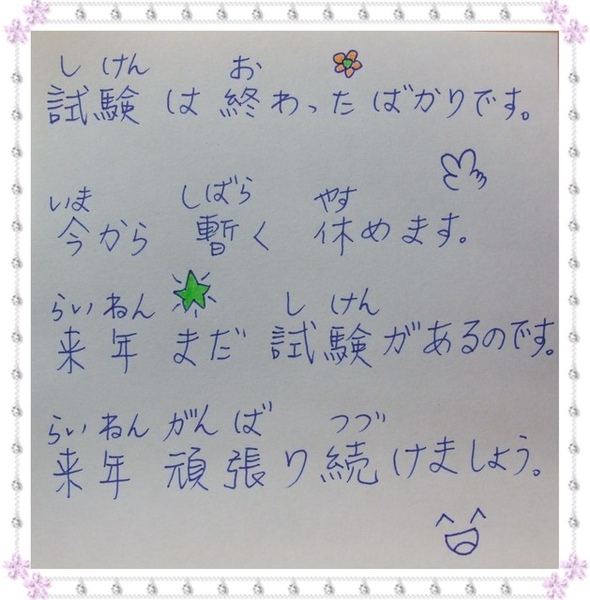 しけん お
試験は終わったばかりです。
いま しばら やす
今から暫く休めます。
らいねん しけん
来年まだ試験があるのです。
らいねん がんば つづ
来年頑張り続けましょう。